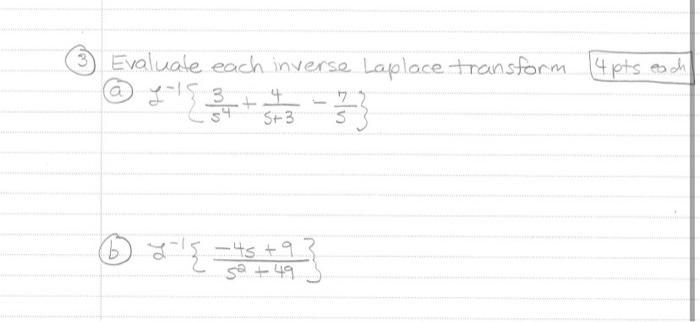 ③ Evaluate each inverse Laplace transform 4 pts each
ⓐ ℒ⁻¹{3/s⁴ + 4/(s+3) - 7/s}
ⓑ ℒ⁻¹{(-4s+9)/(s²+49)}